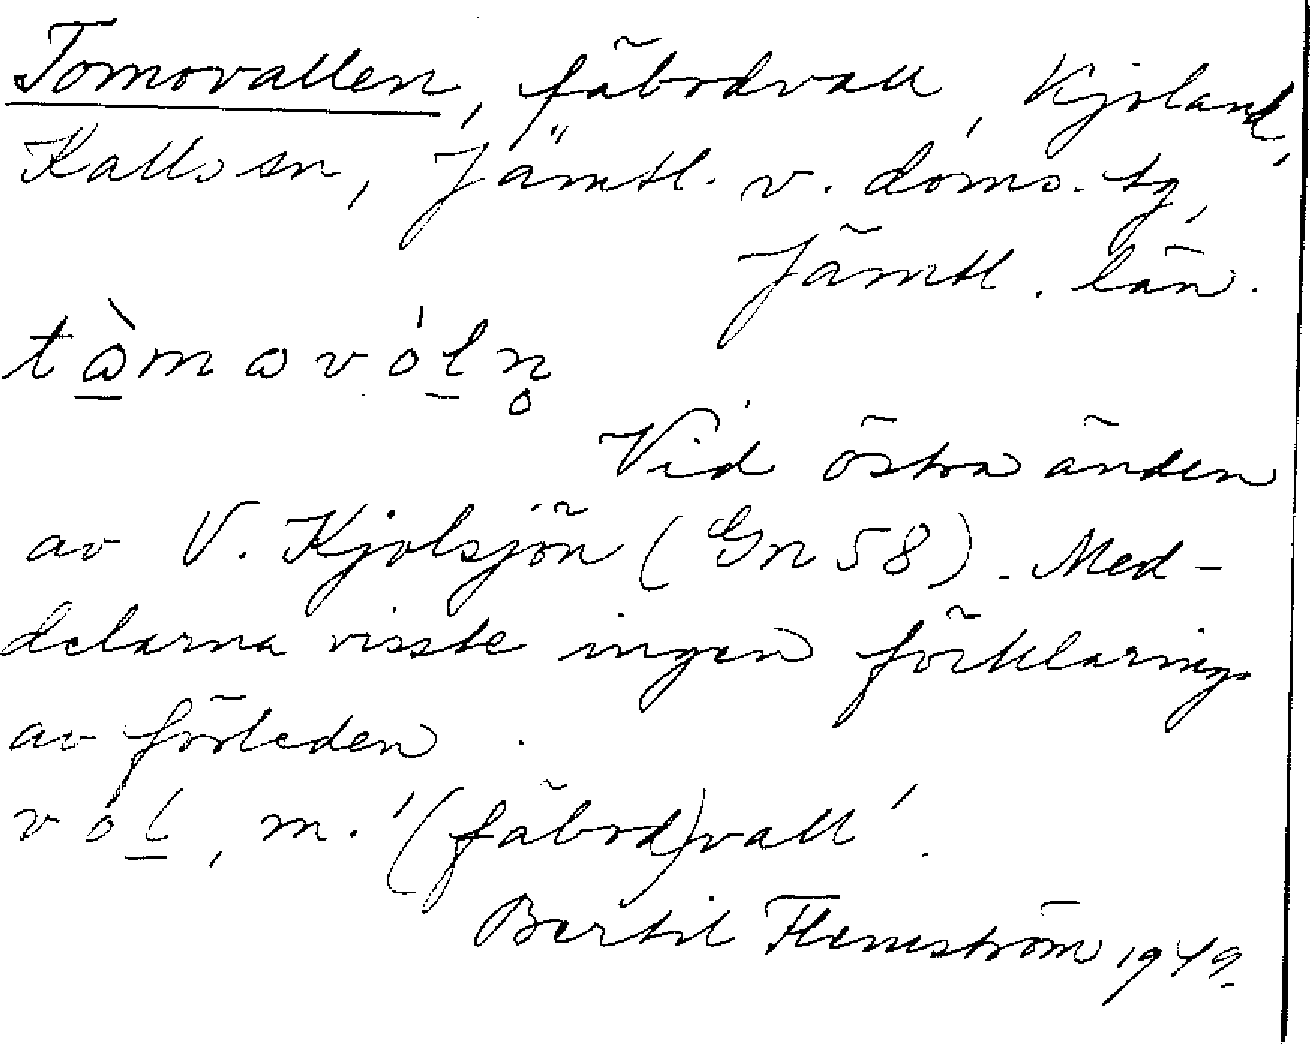 Tomovallen, fäbodvall, Kjoland,
Kalls sn, Jämtl. v. doms. tg,
Jämtl. län.
tò̱mɷvóḻn̥
Vid östra änden
av V. Kjolsjön (Gn 58). Med-
delarna visste ingen förklaring
av förleden.
vóḻ, m. '(fäbod)vall'.
Bertil Flemström 1949.